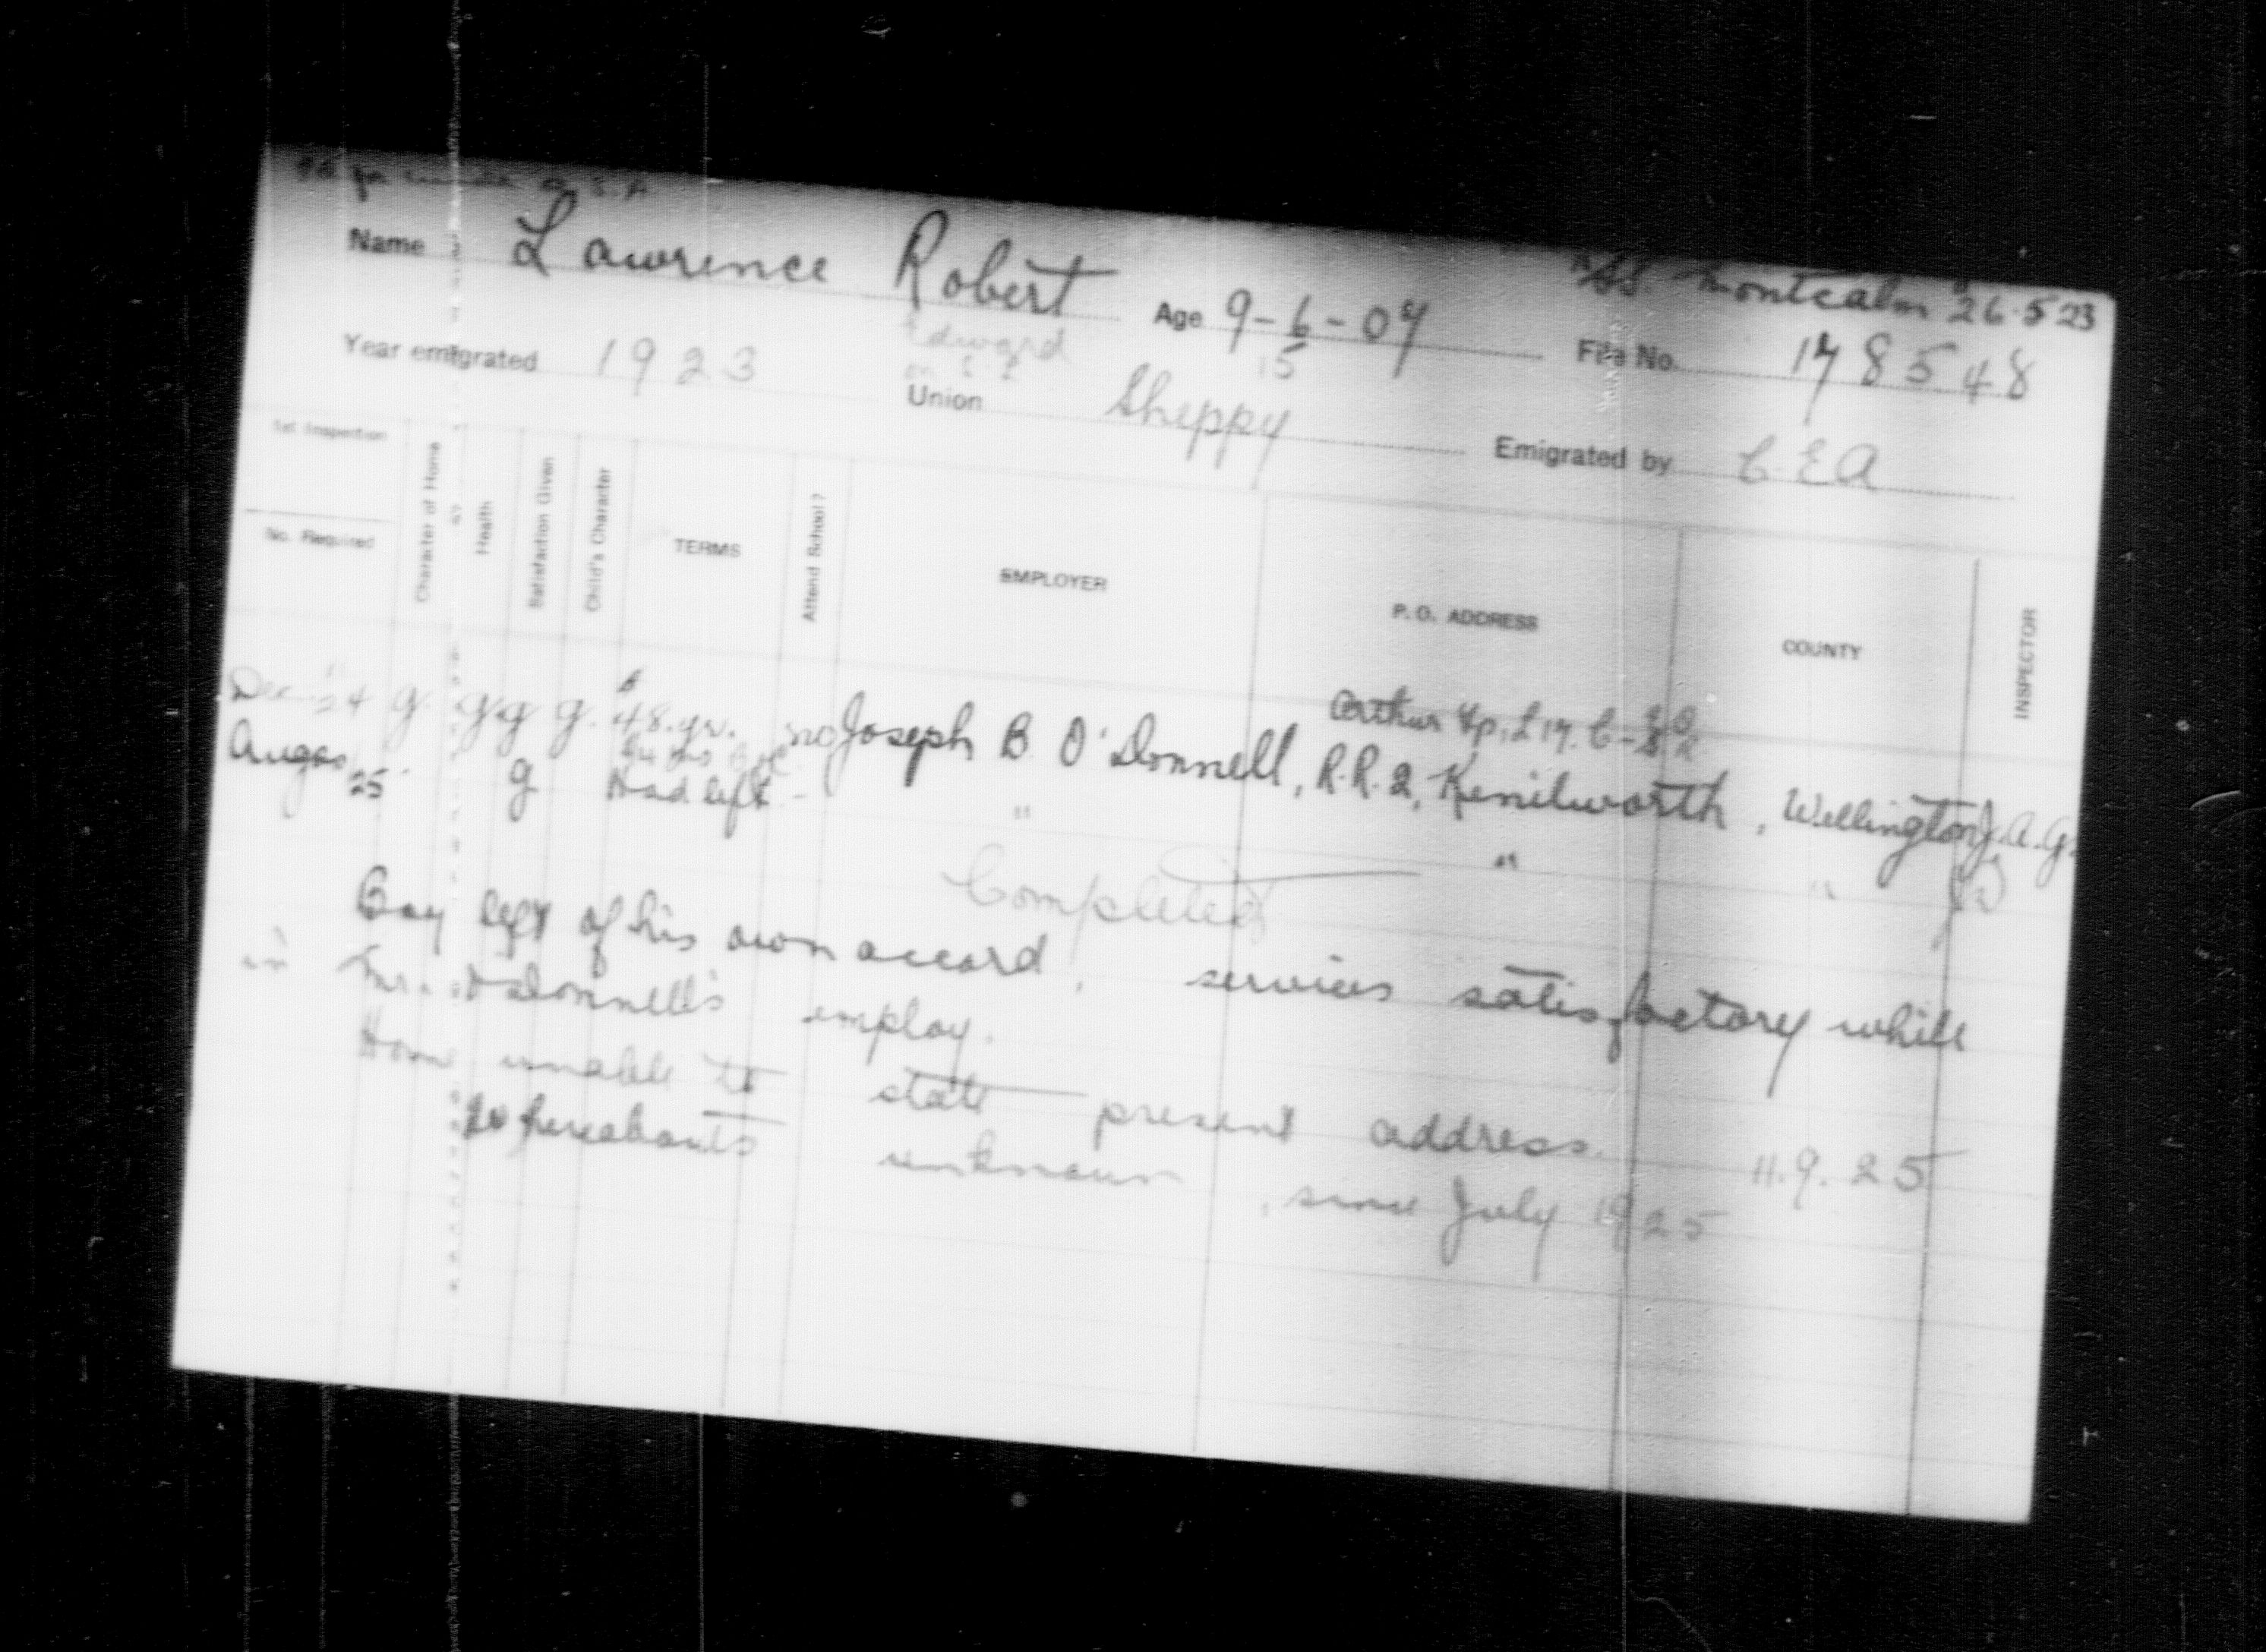 Name Lawrence Robert Age 9-6-07 SS Montcalm 26.5.23
Edward 15 File No. 178548
Year emigrated 1923 Union Sheppy Emigrated by C.E.A
1st Inspection
No. Required
Character of Home
Health
Satisfaction Given
Child's Character
TERMS
Attend School?
EMPLOYER
P. O. ADDRESS
COUNTY
INSPECTOR
Arthur
Dec. '24 g. g g g. 48. yr. no Joseph B. O'Donnell, R.R.2, Kenilworth, Wellington J.A.G.
25 g Had left - " " "
Completed
Boy left of his own accord, services satisfactory while
in Mr. O'Donnell's employ.
Home unable to state present address. 11.9.25
Whereabouts unknown, since July 1925